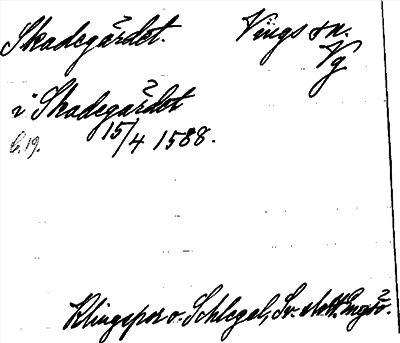 Skadegärdet. Vings sn.
Vg
i Skadegärdet
15/4 1588.
Klingspor o. Schlegel, Sv. slott. Engsö.